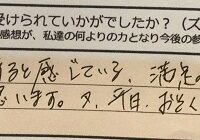 受けられていかがでしたか？（ス
感想が、私達の何よりの力となり今後の参
ると感じている、満足の
思います。又、平日、おとく